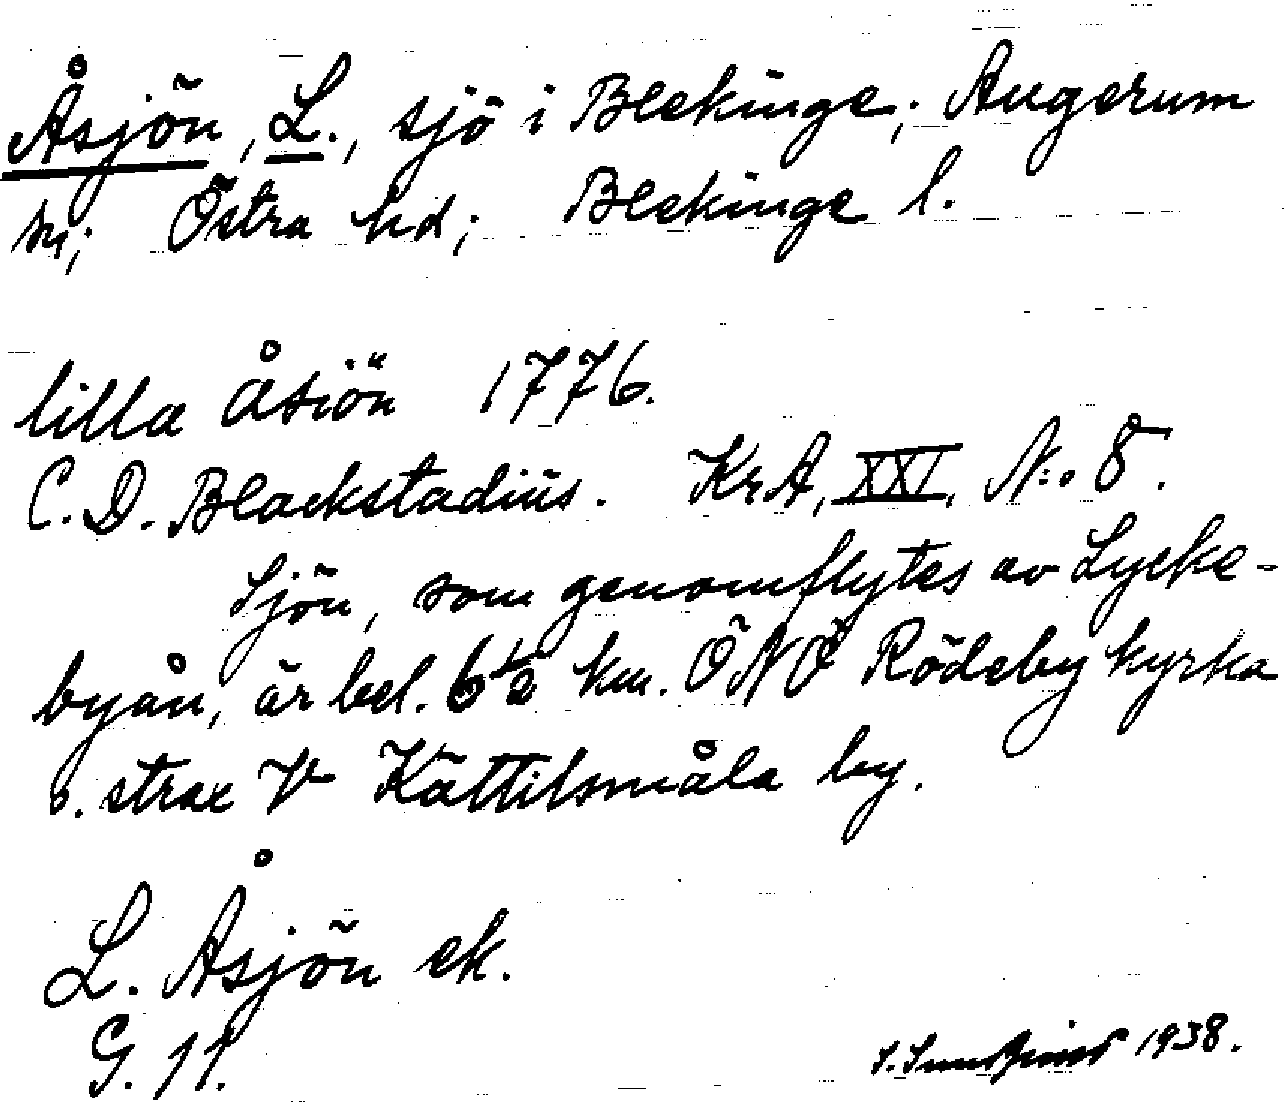 Åsjön, L., sjö i Blekinge; Augerum
sn; Östra hd; Blekinge l.
lilla åsiön 1776.
C. D. Blackstadius. KrA, XXI, N:o 8.
Sjön, som genomflytes av Lycke-
byån, är bel. 6½ km. ÖNÖ Rödeby kyrka
o. strax V Kättilsmåla by.
L. Åsjön ek.
G. 11.
1938.